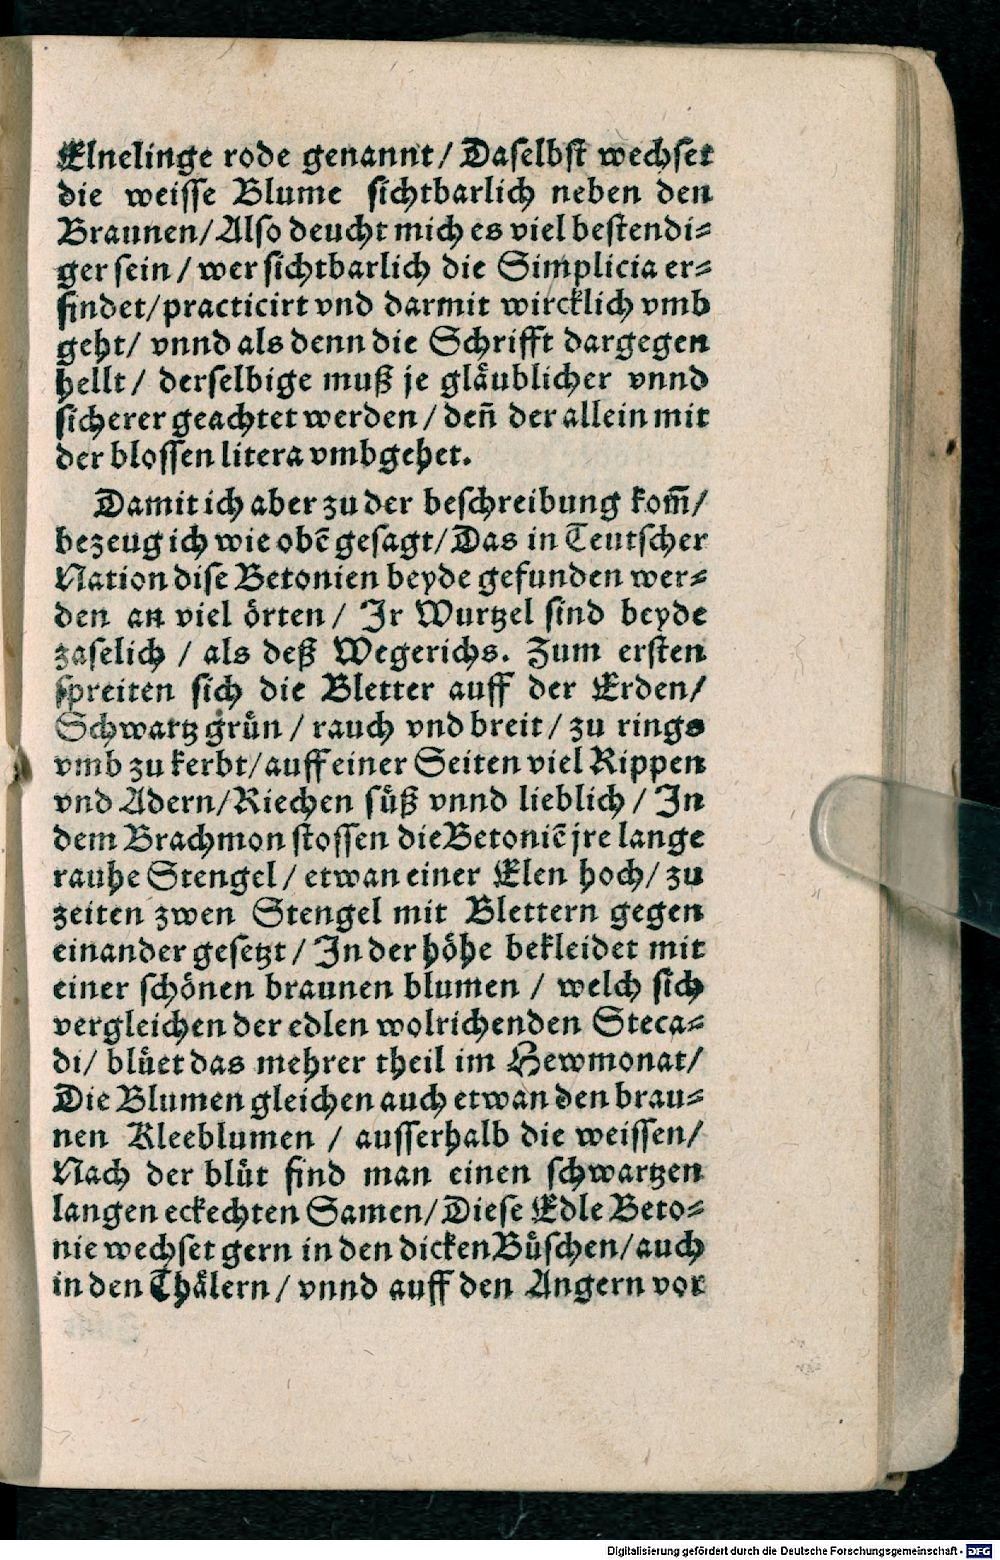 Elnelinge rode genannt/ Daselbst wechset
die weisse Blume sichtbarlich neben den
Braunen/ Also deucht mich es viel bestendi⸗
ger sein/ wer sichtbarlich die Simplicia er⸗
findet/ practicirt vnd darmit wircklich vmb
geht/ vnnd als denn die Schrifft dargegen
hellt/ derselbige muß je glaͤublicher vnnd
sicherer geachtet werden/ deñ der allein mit
der blossen litera vmbgehet.
Damit ich aber zu der beschreibung kom̃/
bezeug ich wie obẽ gesagt/ Das in Teutscher
Nation dise Betonien beyde gefunden wer⸗
den an viel oͤrten/ Jr Wurtzel sind beyde
zaselich/ als deß Wegerichs. Zum ersten
spreiten sich die Bletter auff der Erden/
Schwartz gruͤn/ rauch vnd breit/ zu rings
vmb zu kerbt/ auff einer Seiten viel Rippen
vnd Adern/ Riechen suͤß vnnd lieblich/ Jn
dem Brachmon stossen die Betoniẽ jre lange
rauhe Stengel/ etwan einer Elen hoch/ zu
zeiten zwen Stengel mit Blettern gegen
einander gesetzt/ Jn der hoͤhe bekleidet mit
einer schoͤnen braunen blumen/ welch sich
vergleichen der edlen wolrichenden Steca⸗
di/ bluͤet das mehrer theil im Hewmonat/
Die Blumen gleichen auch etwan den brau⸗
nen Kleeblumen/ ausserhalb die weissen/
Nach der bluͤt find man einen schwartzen
langen eckechten Samen/ Diese Edle Beto⸗
nie wechset gern in den dicken Buͤschen/ auch
in den Thaͤlern/ vnnd auff den Angern vor
Digitalisierung gefördert durch die Deutsche Forschungsgemeinschaft - DFG